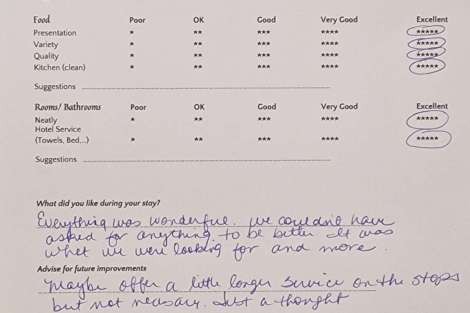 Food Poor OK Good Very Good Excellent
Presentation * ** *** **** *****
Variety * ** *** **** *****
Quality * ** *** **** *****
Kitchen (clean) * ** *** **** *****
Suggestions
Rooms/ Bathrooms Poor OK Good Very Good Excellent
Neatly * ** *** **** *****
Hotel Service
(Towels, Bed,..) * ** *** **** *****
Suggestions
What did you like during your stay?
Everything was wonderful. we couldn't have
asked for anything to be better. It was
what we were looking for and more.
Advise for future improvements
Maybe offer a little longer service on the stops
but not necessary. Just a thought